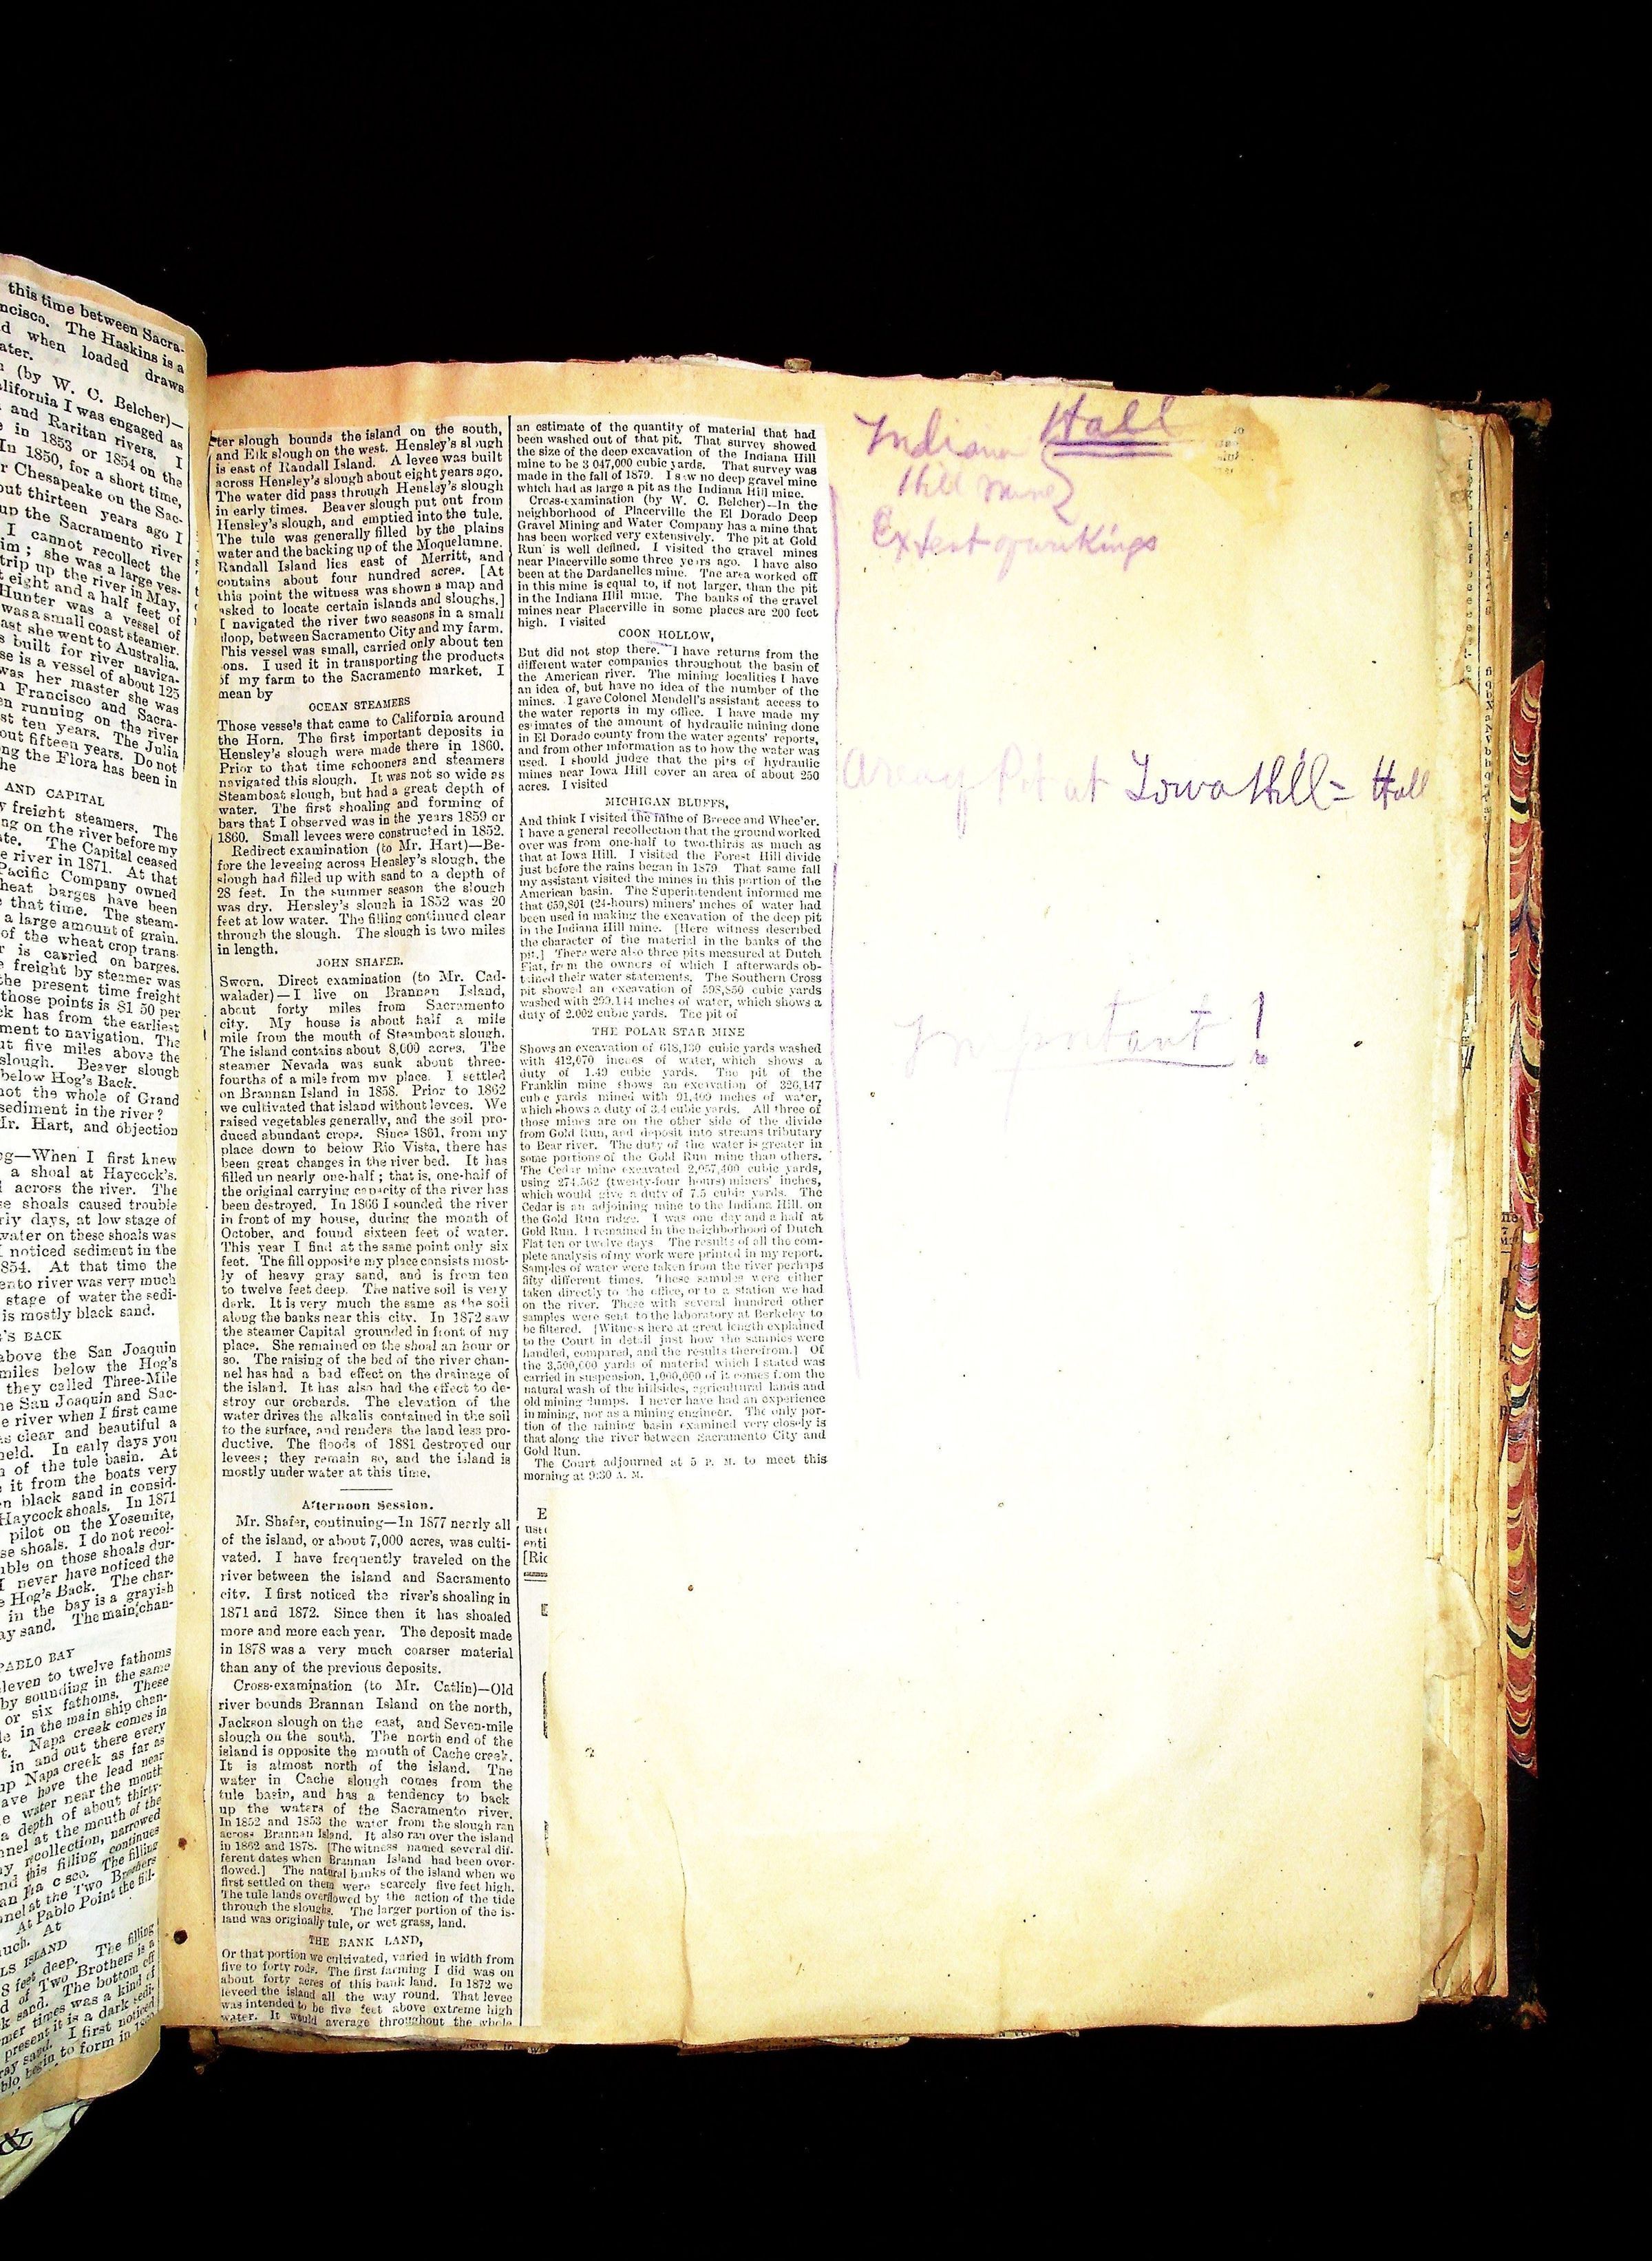 this time between Sacra-
ncisco. The Haskins is a
d when loaded draws
ater.
(by W. C. Belcher)—
alifornia I was engaged as
and Raritan rivers. I
in 1853 or 1854 on the
In 1850, for a short time,
r Chesapeake on the Sac-
out thirteen years ago I
up the Sacramento river
I cannot recollect the
im; she was a large ves-
trip up the river in May,
eight and a half feet of
Hunter was a vessel of
was a small coast steamer.
ast she went to Australia.
s built for river naviga-
se is a vessel of about 125
was her master she was
n Francisco and Sacra-
en running on the river
st ten years. The Julia
out fifteen years. Do not
ng the Flora has been in
he
AND CAPITAL
freight steamers. The
ng on the river before my
ate. The Capital ceased
e river in 1871. At that
Pacific Company owned
heat barges have been
that time. The steam-
a large amount of grain.
of the wheat crop trans-
r is carried on barges.
freight by steamer was
the present time freight
those points is $1 50 per
ck has from the earliest
ment to navigation. The
ut five miles above the
slough. Beaver slough
below Hog's Back.
not the whole of Grand
sediment in the river?
Mr. Hart, and objection
ng—When I first knew
a shoal at Haycock's.
across the river. The
se shoals caused trouble
rly days, at low stage of
water on these shoals was
I noticed sediment in the
1854. At that time the
ento river was very much
stage of water the sedi-
is mostly black sand.
'S BACK
above the San Joaquin
miles below the Hog's
they called Three-Mile
he San Joaquin and Sac-
e river when I first came
as clear and beautiful a
held. In early days you
of the tule basin. At
it from the boats very
n black sand in consid-
Haycock shoals. In 1871
pilot on the Yosemite,
se shoals. I do not recol-
uble on those shoals dur-
I never have noticed the
e Hog's Back. The char-
in the bay is a grayish
ay sand. The main chan-
PABLO BAY
leven to twelve fathoms
by sounding in the same
or six fathoms. These
le in the main ship chan-
t. Napa creek comes in
in and out there every
up Napa creek as far as
ave hove the lead near
e water near the mouth
a depth of about thirty-
nnel at the mouth of the
y recollection, narrowed
nd this filling continues
The filling
nel at the Two Brothers
At Pablo Point the fill-
uch. At
LS ISLAND
8 feet deep. The filling
d of Two Brothers is a
k sand. The bottom off
mer times was a kind of
present it is a dark sedi-
ray sand. I first noticed
blo begin to form in
&
ter slough bounds the island on the south,
and Elk slough on the west. Hensley's slough
is east of Randall Island. A levee was built
across Hensley's slough about eight years ago.
The water did pass through Hensley's slough
in early times. Beaver slough put out from
Hensley's slough, and emptied into the tule.
The tule was generally filled by the plains
water and the backing up of the Moquelumne.
Randall Island lies east of Merritt, and
contains about four hundred acres. [At
this point the witness was shown a map and
asked to locate certain islands and sloughs.]
I navigated the river two seasons in a small
sloop, between Sacramento City and my farm.
This vessel was small, carried only about ten
tons. I used it in transporting the products
of my farm to the Sacramento market. I
mean by
OCEAN STEAMERS
Those vessels that came to California around
the Horn. The first important deposits in
Hensley's slough were made there in 1860.
Prior to that time schooners and steamers
navigated this slough. It was not so wide as
Steamboat slough, but had a great depth of
water. The first shoaling and forming of
bars that I observed was in the years 1859 or
1860. Small levees were constructed in 1852.
Redirect examination (to Mr. Hart)—Be-
fore the leveeing across Hensley's slough, the
slough had filled up with sand to a depth of
28 feet. In the summer season the slough
was dry. Hensley's slough in 1852 was 20
feet at low water. The filling continued clear
through the slough. The slough is two miles
in length.
JOHN SHAFER.
Sworn. Direct examination (to Mr. Cad-
walader)—I live on Brannan Island,
about forty miles from Sacramento
city. My house is about half a mile
mile from the mouth of Steamboat slough.
The island contains about 8,000 acres. The
steamer Nevada was sunk about three-
fourths of a mile from my place. I settled
on Brannan Island in 1858. Prior to 1862
we cultivated that island without levees. We
raised vegetables generally, and the soil pro-
duced abundant crops. Since 1861, from my
place down to below Rio Vista, there has
been great changes in the river bed. It has
filled up nearly one-half; that is, one-half of
the original carrying capacity of the river has
been destroyed. In 1866 I sounded the river
in front of my house, during the month of
October, and found sixteen feet of water.
This year I find at the same point only six
feet. The fill opposite my place consists most-
ly of heavy gray sand, and is from ten
to twelve feet deep. The native soil is very
dark. It is very much the same as the soil
along the banks near this city. In 1872 saw
the steamer Capital grounded in front of my
place. She remained on the shoal an hour or
so. The raising of the bed of the river chan-
nel has had a bad effect on the drainage of
the island. It has also had the effect to de-
stroy our orchards. The elevation of the
water drives the alkalis contained in the soil
to the surface, and renders the land less pro-
ductive. The floods of 1881 destroyed our
levees; they remain so, and the island is
mostly under water at this time.
Afternoon Session.
Mr. Shafer, continuing—In 1877 nearly all
of the island, or about 7,000 acres, was culti-
vated. I have frequently traveled on the
river between the island and Sacramento
city. I first noticed the river's shoaling in
1871 and 1872. Since then it has shoaled
more and more each year. The deposit made
in 1878 was a very much coarser material
than any of the previous deposits.
Cross-examination (to Mr. Catlin)—Old
river bounds Brannan Island on the north,
Jackson slough on the east, and Seven-mile
slough on the south. The north end of the
island is opposite the mouth of Cache creek.
It is almost north of the island. The
water in Cache slough comes from the
tule basin, and has a tendency to back
up the waters of the Sacramento river.
In 1852 and 1853 the water from the slough ran
across Brannan Island. It also ran over the island
in 1862 and 1878. [The witness named several dif-
ferent dates when Brannan Island had been over-
flowed.] The natural banks of the island when we
first settled on them were scarcely five feet high.
The tule lands overflowed by the action of the tide
through the sloughs. The larger portion of the is-
land was originally tule, or wet grass, land.
THE BANK LAND,
Or that portion we cultivated, varied in width from
five to forty rods. The first farming I did was on
about forty acres of this bank land. In 1872 we
leveed the island all the way round. That levee
was intended to be five feet above extreme high
water. It would average throughout the whole
an estimate of the quantity of material that had
been washed out of that pit. That survey showed
the size of the deep excavation of the Indiana Hill
mine to be 3 047,000 cubic yards. That survey was
made in the fall of 1879. I saw no deep gravel mine
which had as large a pit as the Indiana Hill mine.
Cross-examination (by W. C. Belcher)—In the
neighborhood of Placerville the El Dorado Deep
Gravel Mining and Water Company has a mine that
has been worked very extensively. The pit at Gold
Run is well defined. I visited the gravel mines
near Placerville some three years ago. I have also
been at the Dardanelles mine. The area worked off
in this mine is equal to, if not larger, than the pit
in the Indiana Hill mine. The banks of the gravel
mines near Placerville in some places are 200 feet
high. I visited
COON HOLLOW,
But did not stop there. I have returns from the
different water companies throughout the basin of
the American river. The mining localities I have
an idea of, but have no idea of the number of the
mines. I gave Colonel Mendell's assistant access to
the water reports in my office. I have made my
estimates of the amount of hydraulic mining done
in El Dorado county from the water agents' reports,
and from other information as to how the water was
used. I should judge that the pits of hydraulic
mines near Iowa Hill cover an area of about 250
acres. I visited
MICHIGAN BLUFFS,
And think I visited the mine of Breece and Wheeler.
I have a general recollection that the ground worked
over was from one-half to two-thirds as much as
that at Iowa Hill. I visited the Forest Hill divide
just before the rains began in 1879. That same fall
my assistant visited the mines in this portion of the
American basin. The Superintendent informed me
that 659,801 (24-hours) miners' inches of water had
been used in making the excavation of the deep pit
in the Indiana Hill mine. [Here witness described
the character of the material in the banks of the
pit.] There were also three pits measured at Dutch
Flat, from the owners of which I afterwards ob-
tained their water statements. The Southern Cross
pit showed an excavation of 598,850 cubic yards
washed with 299,144 inches of water, which shows a
duty of 2.002 cubic yards. The pit of
THE POLAR STAR MINE
Shows an excavation of 618,130 cubic yards washed
with 412,670 inches of water, which shows a
duty of 1.49 cubic yards. The pit of the
Franklin mine shows an excavation of 326,147
cubic yards mined with 91,409 inches of water,
which shows a duty of 3.4 cubic yards. All three of
those mines are on the other side of the divide
from Gold Run, and deposit into streams tributary
to Bear river. The duty of the water is greater in
some portions of the Gold Run mine than others.
The Cedar mine excavated 2,057,400 cubic yards,
using 274,562 (twenty-four hours) miners' inches,
which would give a duty of 7.5 cubic yards. The
Cedar is an adjoining mine to the Indiana Hill, on
the Gold Run ridge. I was one day and a half at
Gold Run. I remained in the neighborhood of Dutch
Flat ten or twelve days. The results of all the com-
plete analysis of my work were printed in my report.
Samples of water were taken from the river perhaps
fifty different times. These samples were either
taken directly to the office, or to a station we had
on the river. These with several hundred other
samples were sent to the laboratory at Berkeley to
be filtered. [Witness here at great length explained
to the Court in detail just how the samples were
handled, compared, and the results therefrom.] Of
the 3,590,000 yards of material which I stated was
carried in suspension, 1,000,000 of it comes from the
natural wash of the hillsides, agricultural lands and
old mining dumps. I never have had an experience
in mining, nor as a mining engineer. The only por-
tion of the mining basin examined very closely is
that along the river between Sacramento City and
Gold Run.
The Court adjourned at 5 P. M. to meet this
morning at 9:30 A. M.
E
enti
[Ric
Hall
Indiana
Hill Mine
Extent of workings
Area of Pit at Iowa Hill = Hall
Important!